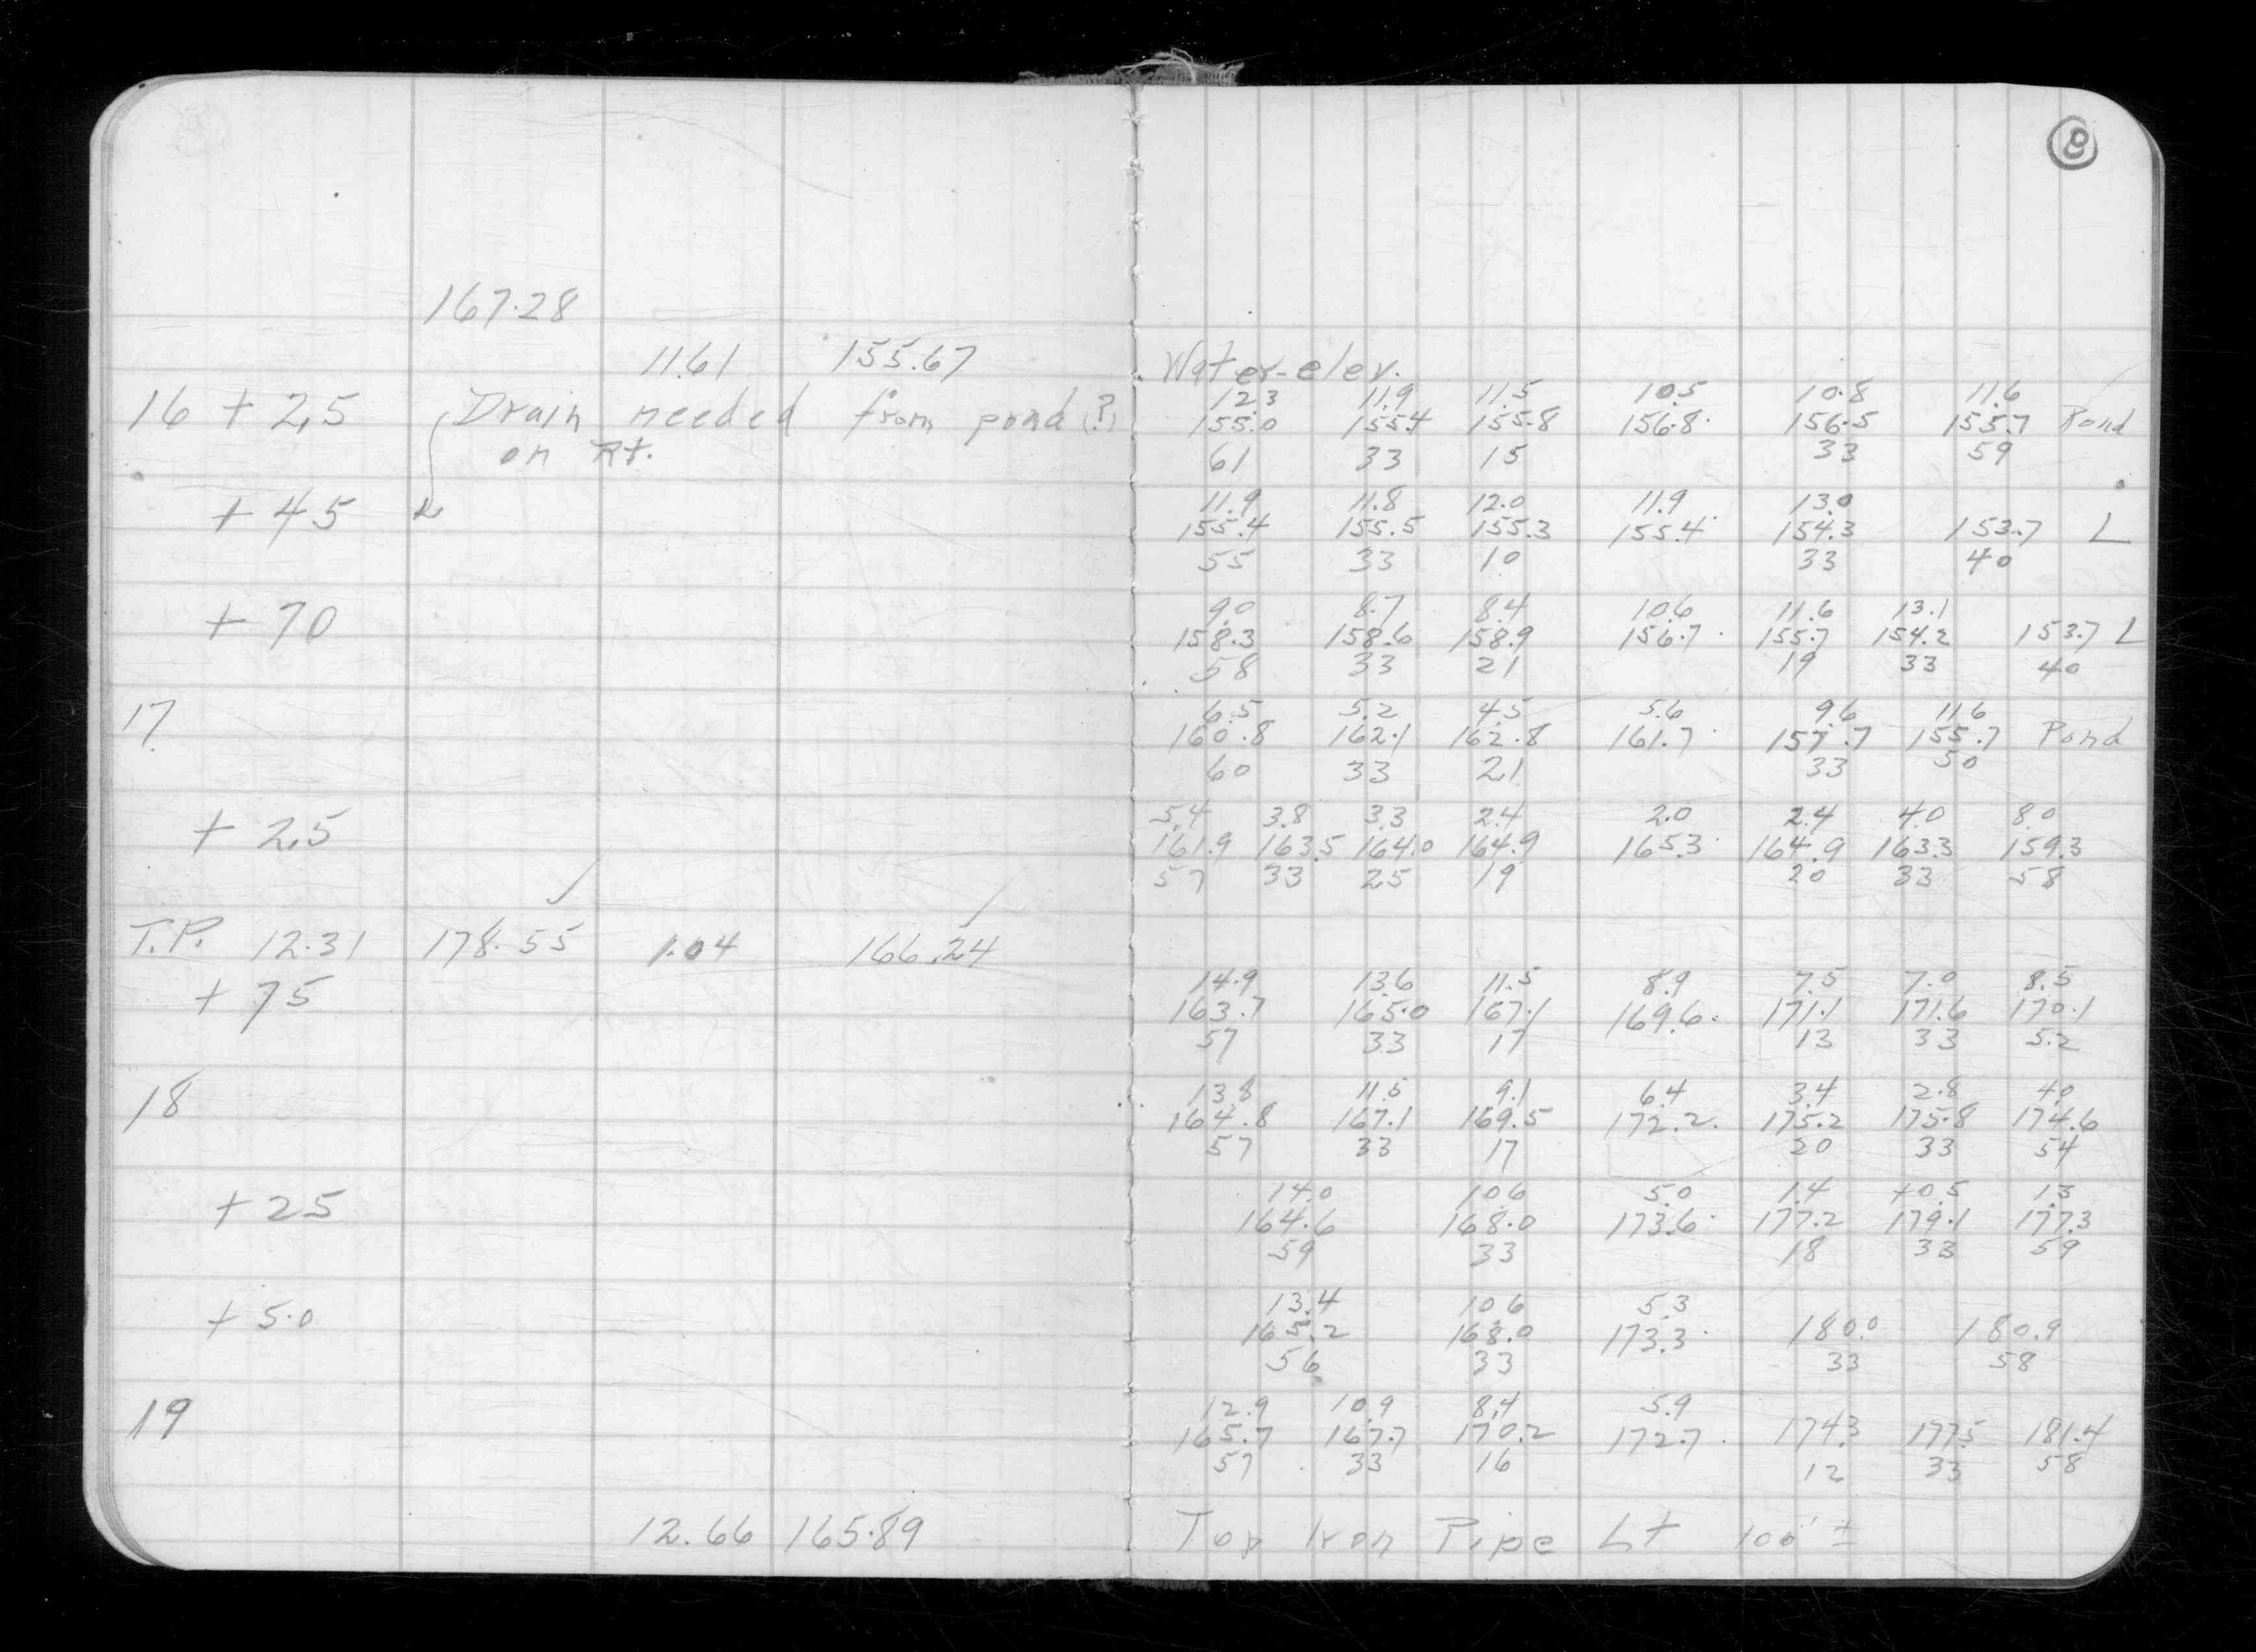 8
167.28
11.61 155.67 Water-elev.
12.3 11.9 11.5 10.5 10.8 11.6
16 + 25 Drain needed from pond (?) 155.0 155.4 155.8 156.8 156.5 155.7 Pond
on Rt. 61 33 15 33 59
11.9 11.8 12.0 11.9 13.0
+ 45 155.4 155.5 155.3 155.4 154.3 153.7 L
55 33 10 33 40
9.0 8.7 8.4 10.6 11.6 13.1
+ 70 158.3 158.6 158.9 156.7 155.7 154.2 153.7 L
58 33 21 19 33 40
6.5 5.2 4.5 5.6 9.6 11.6
17 160.8 162.1 162.8 161.7 157.7 155.7 Pond
60 33 21 33 50
5.4 3.8 3.3 2.4 2.0 2.4 4.0 8.0
+ 25 161.9 163.5 164.0 164.9 165.3 164.9 163.3 159.3
57 33 25 19 20 33 58
T.P. 12.31 178.55 1.04 166.24
14.9 13.6 11.5 8.9 7.5 7.0 8.5
+ 75 163.7 165.0 167.1 169.6 171.1 171.6 170.1
57 33 17 13 33 52
13.8 11.5 9.1 6.4 3.4 2.8 4.0
18 164.8 167.1 169.5 172.2 175.2 175.8 174.6
57 33 17 20 33 54
14.0 10.6 5.0 1.4 +0.5 1.3
+ 25 164.6 168.0 173.6 177.2 179.1 177.3
59 33 18 33 59
13.4 10.6 5.3
+ 50 165.2 168.0 173.3 180.0 180.9
56 33 33 58
12.9 10.9 8.4 5.9
19 165.7 167.7 170.2 172.7 174.3 177.5 181.4
57 33 16 12 33 58
12.66 165.89 Top Iron Pipe Lt 100' ±